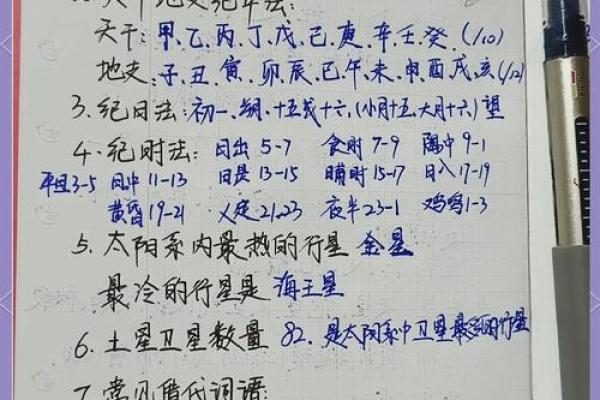 天干地支纪年法:
天干:甲、乙、丙、丁、戊、己、庚、辛、壬、癸、(/10)
地支:子、丑、寅、卯、辰、巳、午、未、申、酉、戌、亥(/12)
3.纪日法:初一、朔、十五或十六,(小月十五、大月十六)望
4.纪时法:日出 5-7 食时 7-9 隅中 9-1
平旦3-5 日中 11-13 日昳 13-15 晡时 15-17 日入 17-19
黄昏 19-21 人定 21.23 夜半 23-1 鸡鸣1-3
5.太阳系内最热的行星 金星
最冷的行星是 海王星
6.土星卫星数量 82.是太阳系中卫星最多的行星
7.常见借代词语: